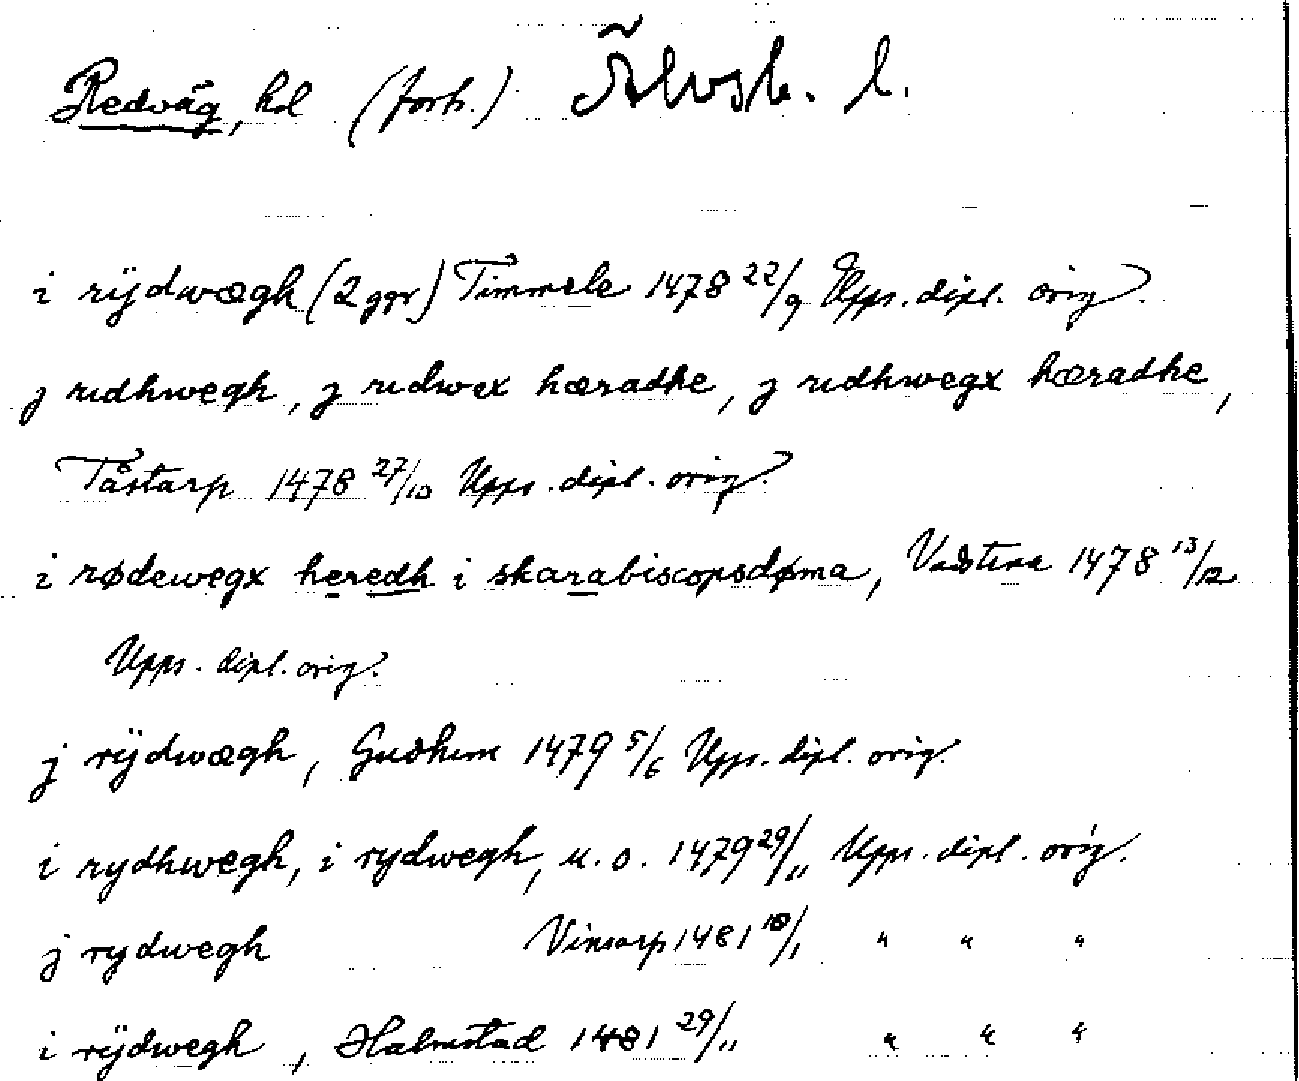 Redväg, hd (forts.) Älvsb. l.
i rÿdwægh (2 ggr) Timmele 1478 22/9 Upps. dipl. orig.
j rudhwegh, j rudwex hæradhe, j rudhwegx hæradhe,
Tåstarp 1478 27/10 Upps. dipl. orig.
i rødewegx heredh i skarabiscopsdøma, Vadstena 1478 13/12
Upps. dipl. orig.
j rÿdwægh, Gudhem 1479 5/6 Upps. dipl. orig.
i rydhwegh, i rydwegh, u. o. 1479 29/11 Upps. dipl. orig.
j rydwegh Vinsarp 1481 18/1 " " "
i rÿdwegh, Halmstad 1481 29/11 " " "